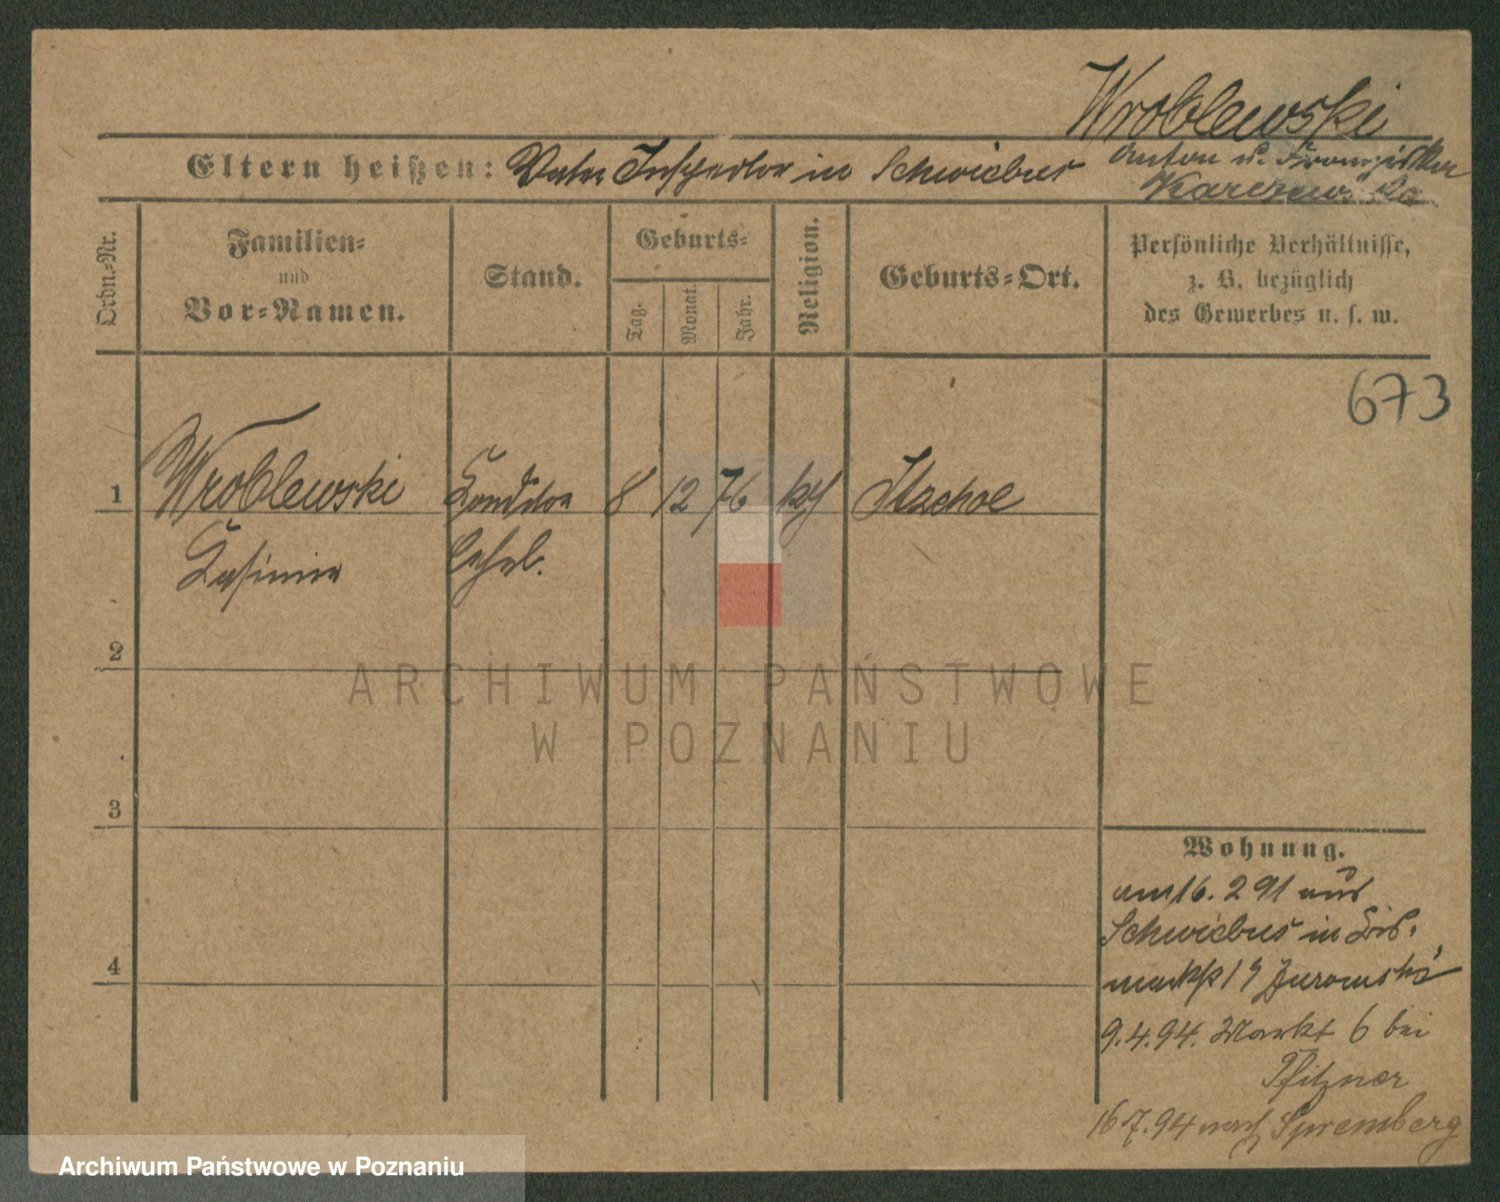 Wroblewski
Eltern heißen: Vater Inspektor in Schwiebus Anton u. Franziska
Karczewska
Ordn.-Nr.
Familien-
und
Vor-Namen.
Stand.
Geburts-
Tag.
Monat.
Jahr.
Religion.
Geburts-Ort.
Persönliche Verhältnisse,
z. B. bezüglich
des Gewerbes u. s. w.
673
1 Wroblewski Konditor 8 12 76 kth Itzehoe
Kasimir Lehrl.
2
ARCHIWUM PAŃSTWOWE
W POZNANIU
3
4
Wohnung.
am 16. 2 91 aus
Schwiebus in
9.4.94. Markt 6 bei
Pfitzner
16 7.94 nach Spremberg
Archiwum Państwowe w Poznaniu